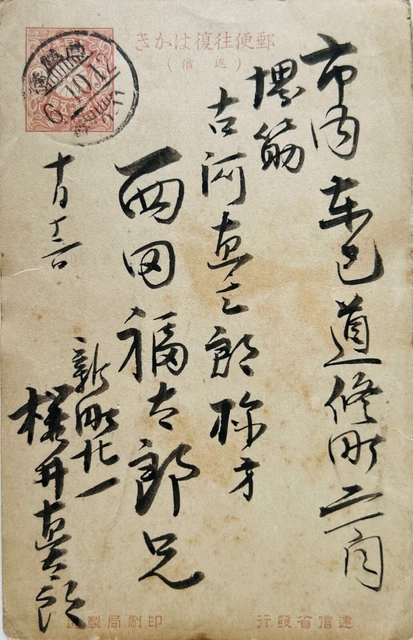 郵便往復はかき
(返信)
市内東区道修町二丁目
堺筋
古河直三郎様方
西田福太郎兄
十月十二日
新町北一
桜井直太郎
遞信省發行
印刷局製造